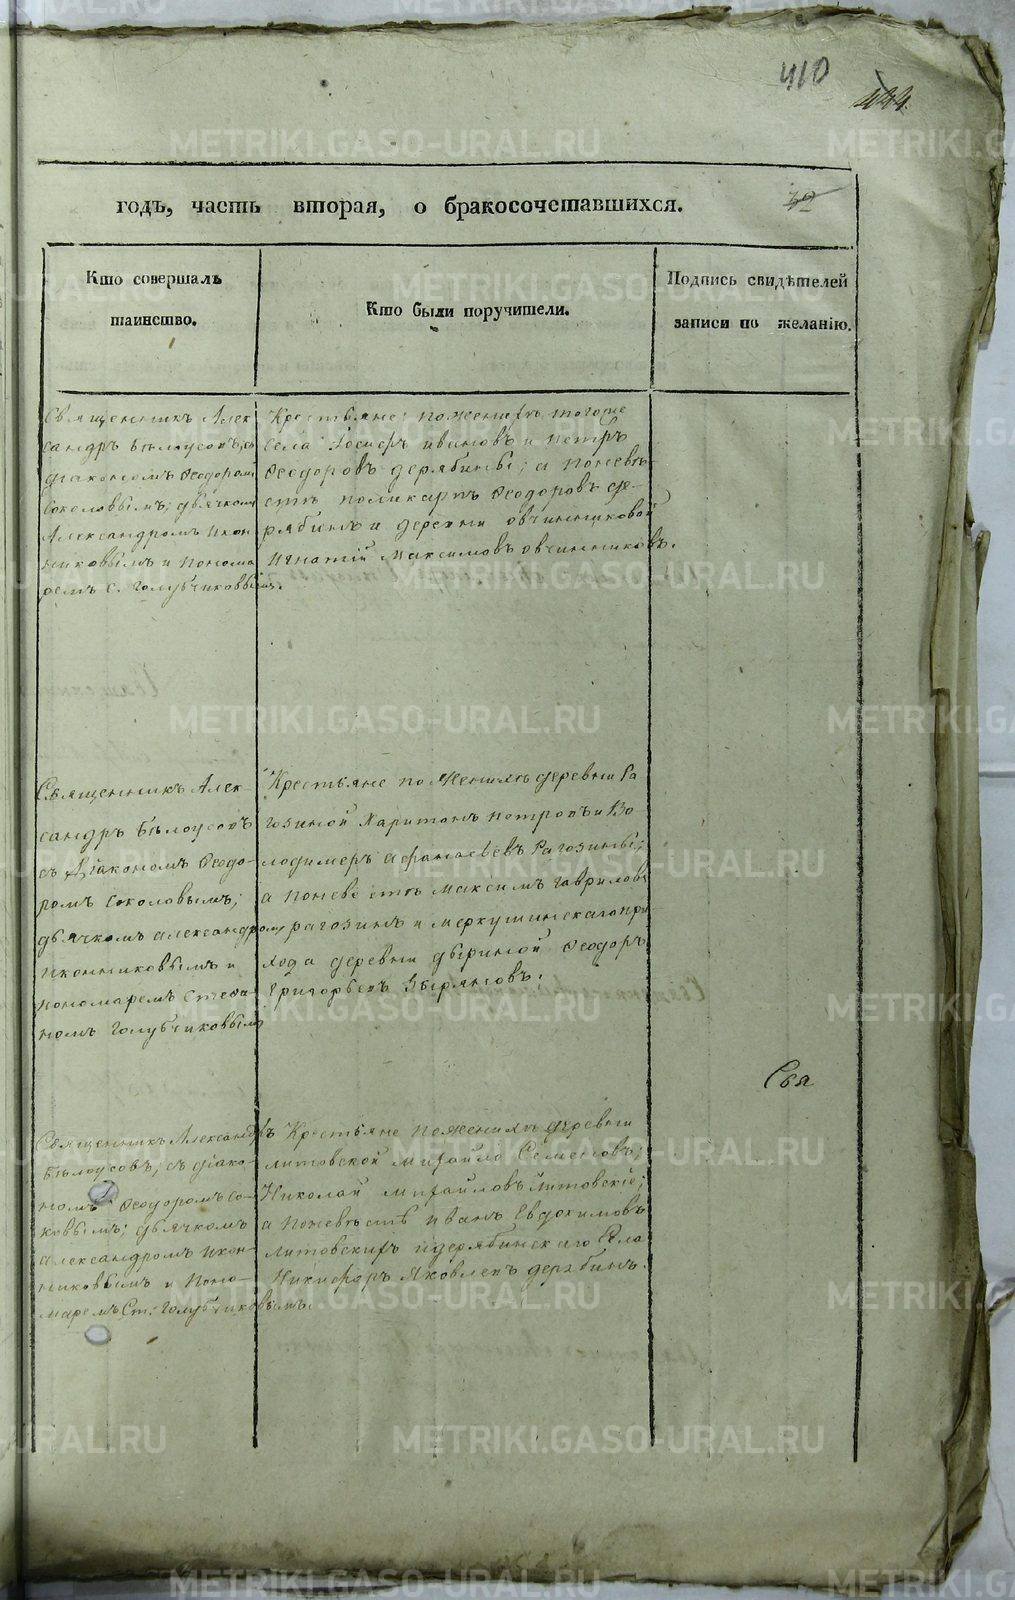 410
444.
годъ, часть вторая, о бракосочетавшихся.
39
Кто совершалъ
таинство.
Кто были поручители.
Подпись свидѣтелей
записи по желанію.
Священникъ Алек-
сандръ Бѣлоусовъ, съ
діакономъ Феодоромъ
Соколовымъ; дьячкомъ
Александромъ Икон-
никовымъ и понома-
ремъ С. Голубчиковымъ.
Крестьяне; по женихѣ тогоже
села Іосифъ Ивановъ и Петръ
Феодоровъ Дерябины; а по невѣ-
стѣ Поликарпъ Феодоровъ Де-
рябинъ и деревни Овчинниковой
Игнатій Максимовъ Овчинниковъ.
Священникъ Алек-
сандръ Бѣлоусовъ
съ Діакономъ Феодо-
ромъ Соколовымъ;
дьячкомъ Александромъ
Иконниковымъ и
пономаремъ Стефа-
номъ Голубчиковымъ
Крестьяне по женихѣ деревни Ра-
гозиной Харитонъ Петровъ и Во-
лодимеръ Афанасьевъ Рагозины;
а по невѣстѣ Максимъ Гавриловъ
Рагозинъ и Меркушинскаго при-
хода деревни Феодоръ
Григорьевъ
Свя
Священникъ Александръ
Бѣлоусовъ; съ діако-
номъ Феодоромъ Со-
ковымъ; дьячкомъ
Александромъ Икон-
никовымъ и поно-
маремъ Ст: Голубчиковымъ.
Крестьяне по женихѣ деревни
Литовской Михайло Семеновъ;
Николай Михайловъ Литовскіе;
а по невѣстѣ Иванъ Евдокимовъ
Литовскихъ и Дерябинскаго Села
Никифоръ Яковлевъ Дерябинъ.
METRIKI.GASO-URAL.RU